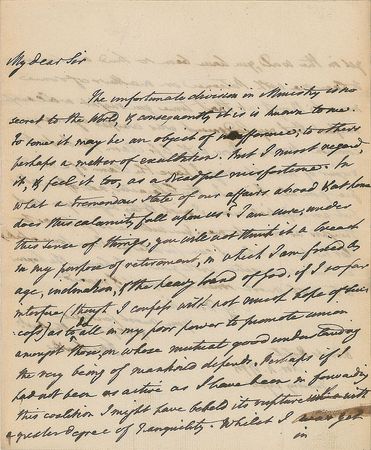 My dear Sir
The unfortunate division in Ministry is no
secret to the World, & consequently it is is known to me.
To some it may be an object of indifference; to others
perhaps a matter of exultation. But I must regard
it, & feel it too, as a dreadful misfortune. In
what a tremendous state of our affairs abroad & at home
does this calamity fall upon us? I am sure, under
this sense of things, you will not think it a breach
in my purpose of retirement, in which I am fixed by
age, inclination, & the heavy hand of God, if I so far
interfere (though I confess with not much hope of suc
cess) as to do all in my poor power to promote union
amongst those, on whose mutual good understanding
the very being of mankind depends. Perhaps if I
had not been as active as I have been in forwarding
this coalition I might have beheld its rupture with
a greater degree of tranquility. Whilst I was yet
in